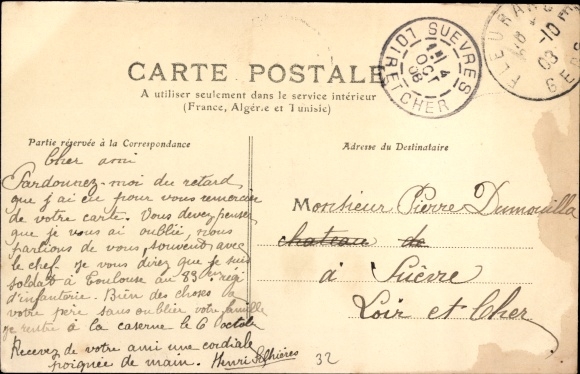 CARTE POSTALE
A utiliser seulement dans le service intérieur
(France, Algérie et Tunisie)
Partie réservée à la Correspondance
Adresse du Destinataire
SUEVRES
LOIR ET CHER
4
OCT
08
FLEURANCE
-10
03
GERS
Cher ami
Pardonnez-moi du retard
que j'ai eu pour vous remercier
de votre carte. Vous devez penser
que je vous ai oublié, nous
parlions de vous souvent avec
le chef. Je vous direz que je suis
soldat à Toulouse au 83em régi
d'infanterie. Bien des choses à
votre père sans oublier votre famille
je rentre à la caserne le 6 octobre
Recevez de votre ami une cordiale
poignée de main. Henri
Monsieur Pierre Dumouilla
chateau de
à Suèvre
Loir et Cher
32